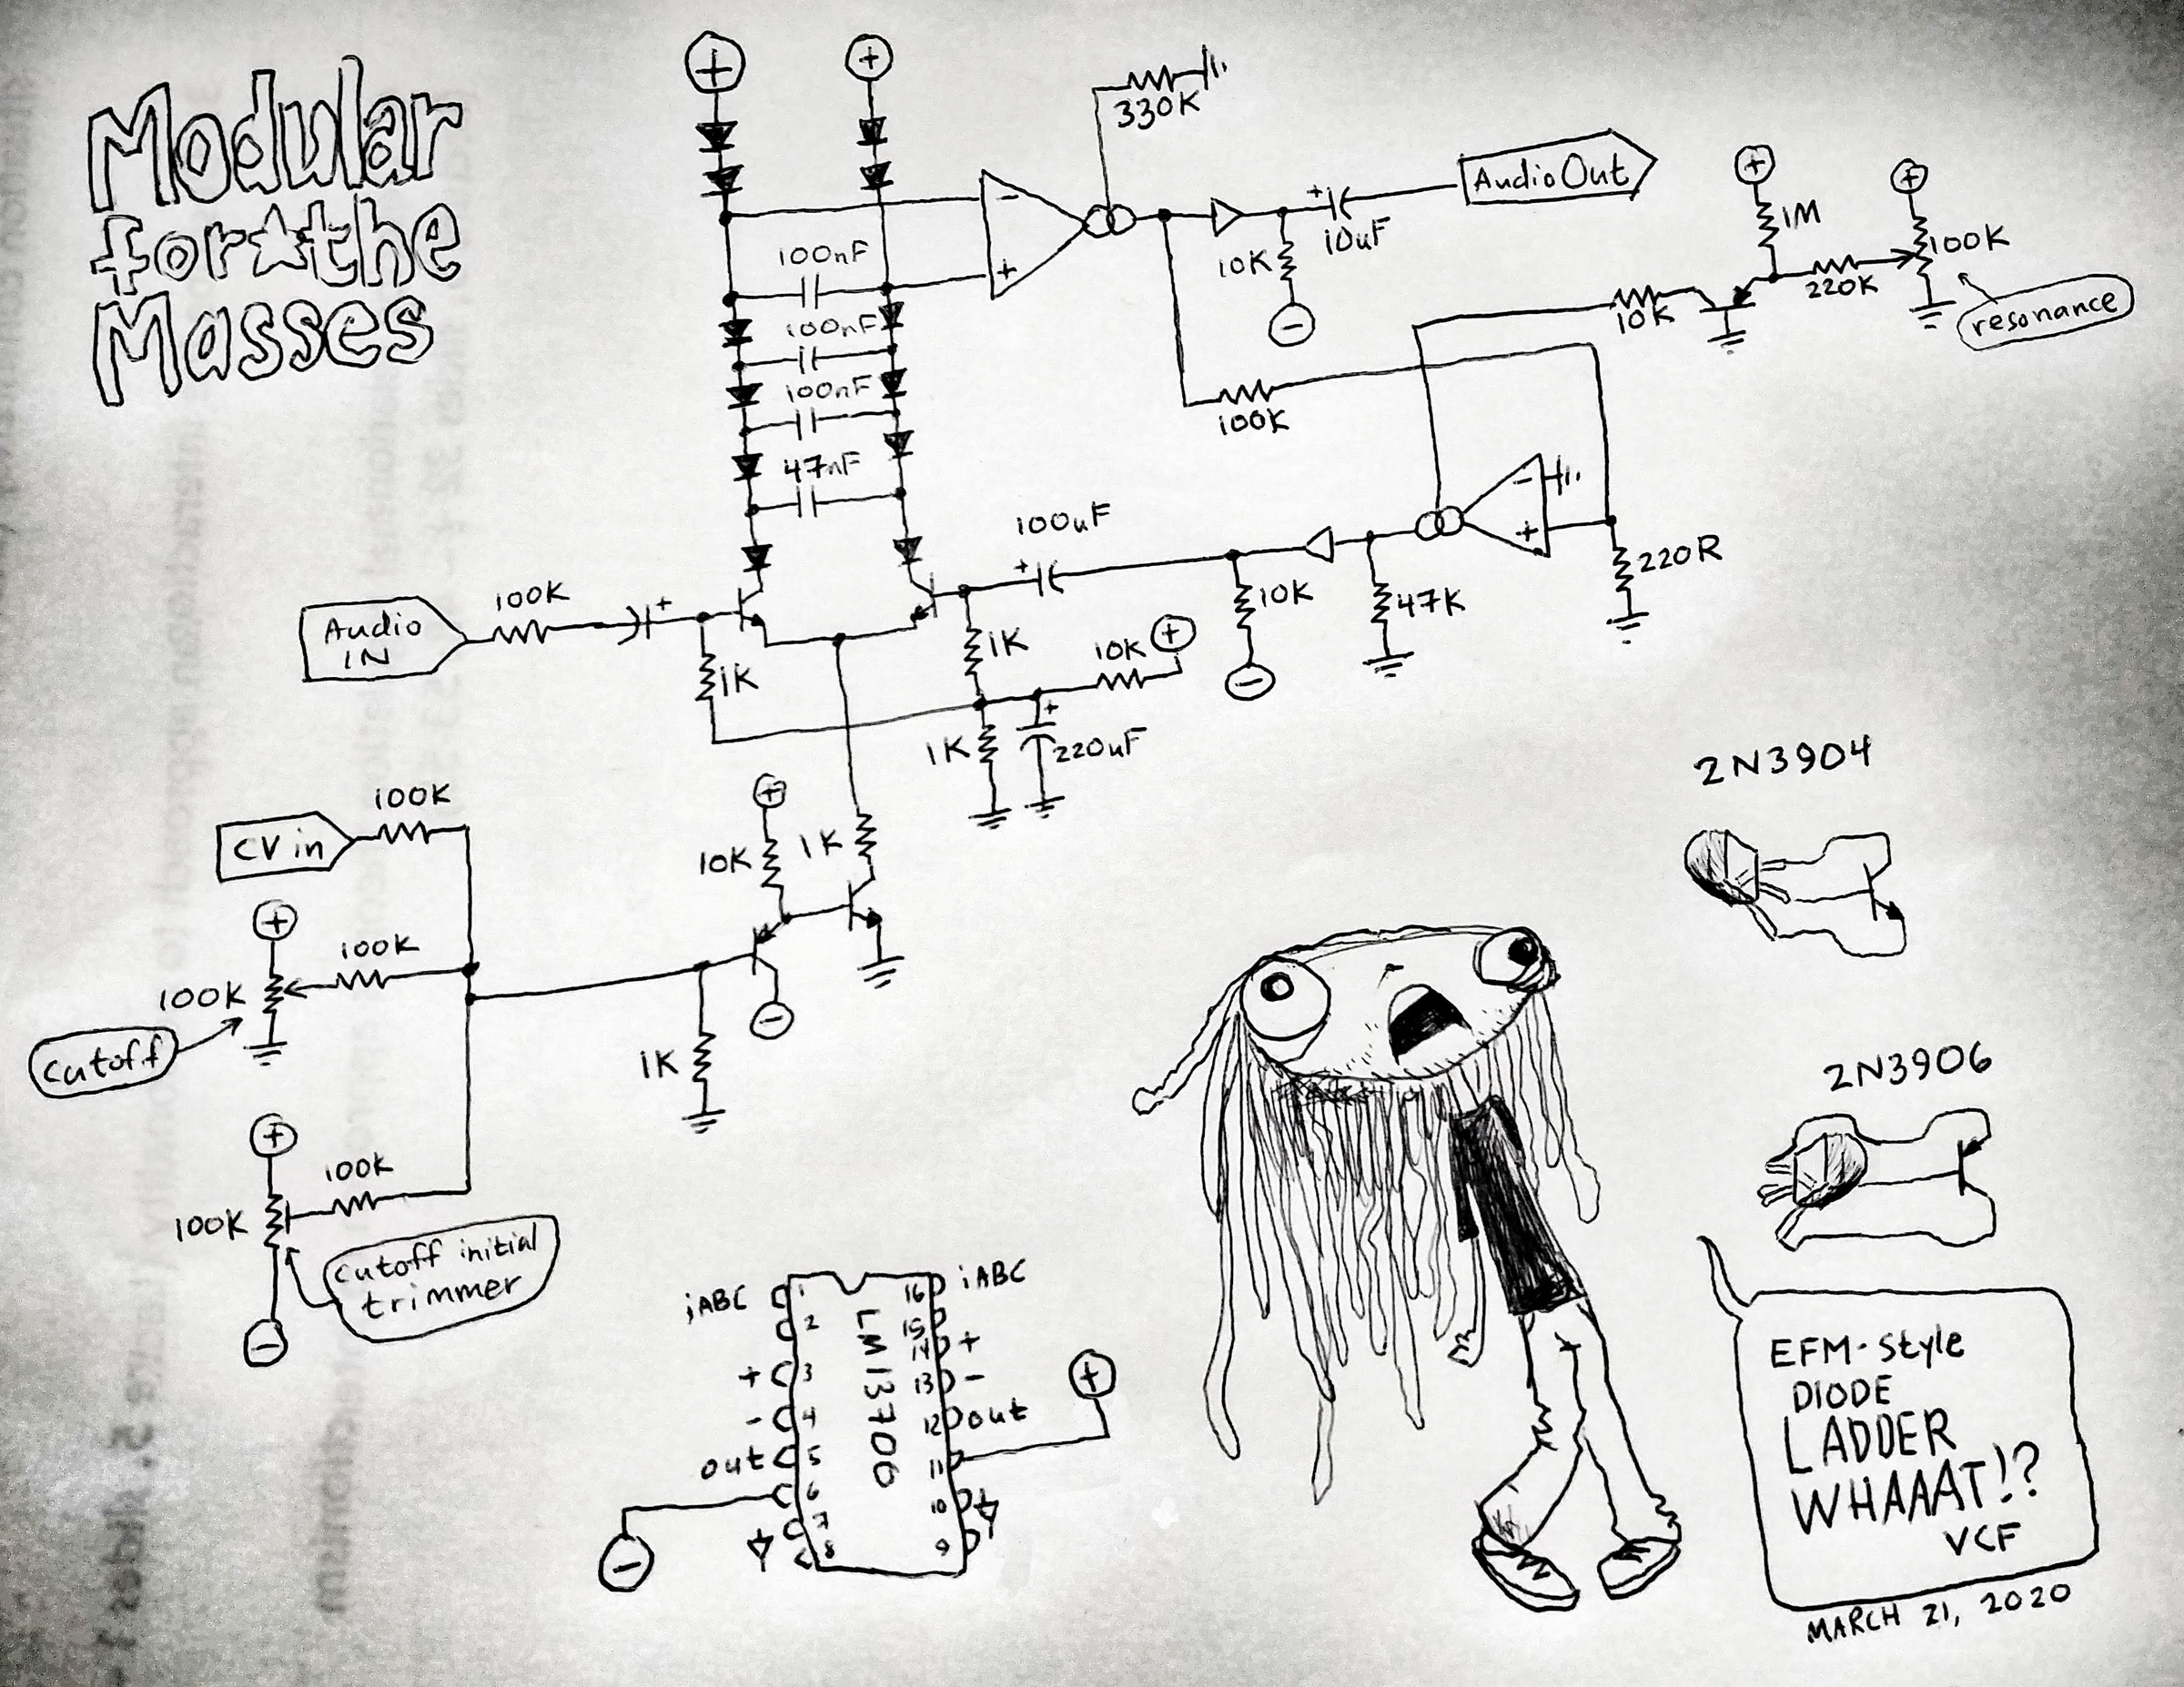 Modular
for★the
Masses
+
+
330K
Audio Out
100nF
-
+
10K
+
10uF
-
+
1M
+
100K
220K
10K
resonance
100nF
100nF
47nF
100K
-
+
220R
100uF
+
10K
47K
-
Audio
IN
100K
+
1K
1K
10K
+
+
1K
220uF
2N3904
CV in
100K
+
10K
1K
+
100K
100K
cutoff
-
1K
+
100K
100K
cutoff initial
trimmer
-
2N3906
iABC
1
16
iABC
2
15
+
3
14
+
-
4
13
-
out
5
12
out
6
11
+
7
10
8
9
-
LM13700
EFM-style
DIODE
LADDER
WHAAAT!?
VCF
MARCH 21, 2020